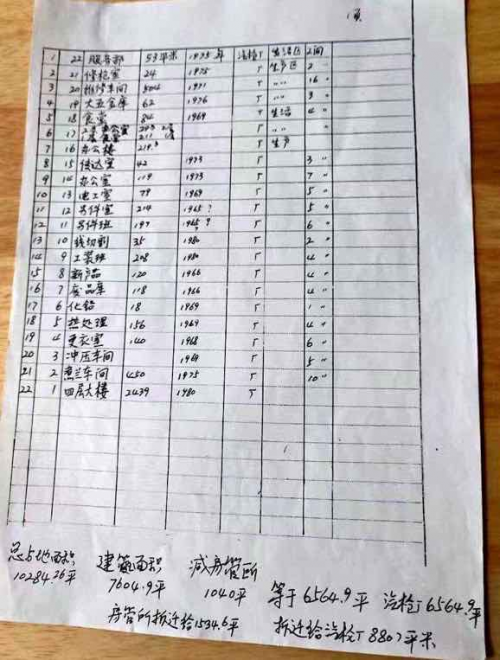 1 22 服务部 53平米 1975年 汽检厂 生活区 2间
2 21 修枪室 24 1975 厂 生产区 2〃
3 20 维修车间 504 1971 厂 〃〃 16〃
4 19 大五金库 62 1976 厂 〃〃 3〃
5 18 食堂 84 1969 厂 生活 4〃
6 17 厂 〃〃
7 16 办公楼 219.3 厂 生产
8 15 传达室 42 1973 厂 3〃
9 14 办公室 119 1973 厂 7〃
10 13 电工室 79 1969 厂 5〃
11 12 另件室 214 1965? 厂 5〃
12 11 另件班 197 1965? 厂 6〃
13 10 线切割 35 1980 厂 2〃
14 9 工装班 208 1980 厂 4〃
15 8 新产品 120 1966 厂 4〃
16 7 废品集 118 1966 厂 4〃
17 6 化铅 18 1969 厂 1〃
18 5 热处理 156 1969 厂 4〃
19 4 更衣室 140 1968 厂 6〃
20 3 冲压车间 1964 厂 5〃
21 2 车间 450 1975 厂 10〃
22 1 四层大楼 2439 1980 厂
总占地面积 建筑面积 减房管所
10284.26平 7604.9平 1040平 等于6564.9平 汽检厂6564.9平
房管所拆迁给1534.6平 拆迁给汽检厂8807平米